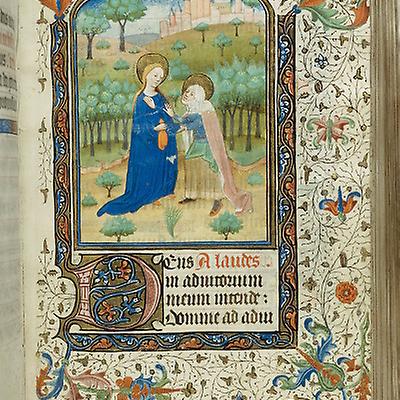 Deus A laudes
in adiutorium
meum intende :
Domine ad adiu